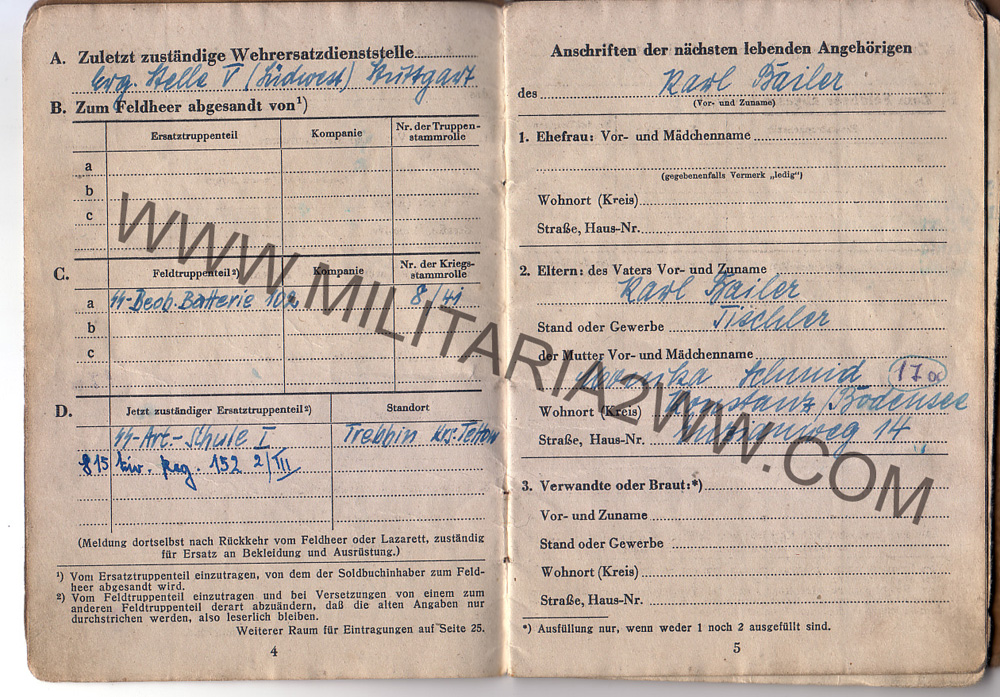 A. Zuletzt zuständige Wehrersatzdienststelle
Erg. Stelle V (Südwest) Stuttgart
B. Zum Feldheer abgesandt von¹)
Ersatztruppenteil Kompanie Nr. der Truppen-
stammrolle
a
b
c
C. Feldtruppenteil²) Kompanie Nr. der Kriegs-
stammrolle
a SS-Beob. Batterie 102 8/41
b
c
D. Jetzt zuständiger Ersatztruppenteil²) Standort
SS-Art.-Schule I Trebbin Krs. Teltow
152 2/III
(Meldung dortselbst nach Rückkehr vom Feldheer oder Lazarett, zuständig
für Ersatz an Bekleidung und Ausrüstung.)
¹) Vom Ersatztruppenteil einzutragen, von dem der Soldbuchinhaber zum Feld-
heer abgesandt wird.
²) Vom Feldtruppenteil einzutragen und bei Versetzungen von einem zum
anderen Feldtruppenteil derart abzuändern, daß die alten Angaben nur
durchstrichen werden, also leserlich bleiben.
Weiterer Raum für Eintragungen auf Seite 25.
4
Anschriften der nächsten lebenden Angehörigen
des Karl Bailer
(Vor- und Zuname)
1. Ehefrau: Vor- und Mädchenname
(gegebenenfalls Vermerk „ledig")
Wohnort (Kreis)
Straße, Haus-Nr.
2. Eltern: des Vaters Vor- und Zuname
Karl Bailer
Stand oder Gewerbe Tischler
der Mutter Vor- und Mädchenname
Schmid 17a
Wohnort (Kreis) Konstanz/Bodensee
Straße, Haus-Nr. 14
3. Verwandte oder Braut:*)
Vor- und Zuname
Stand oder Gewerbe
Wohnort (Kreis)
Straße, Haus-Nr.
*) Ausfüllung nur, wenn weder 1 noch 2 ausgefüllt sind.
5
WWW.MILITARIA2WW.COM